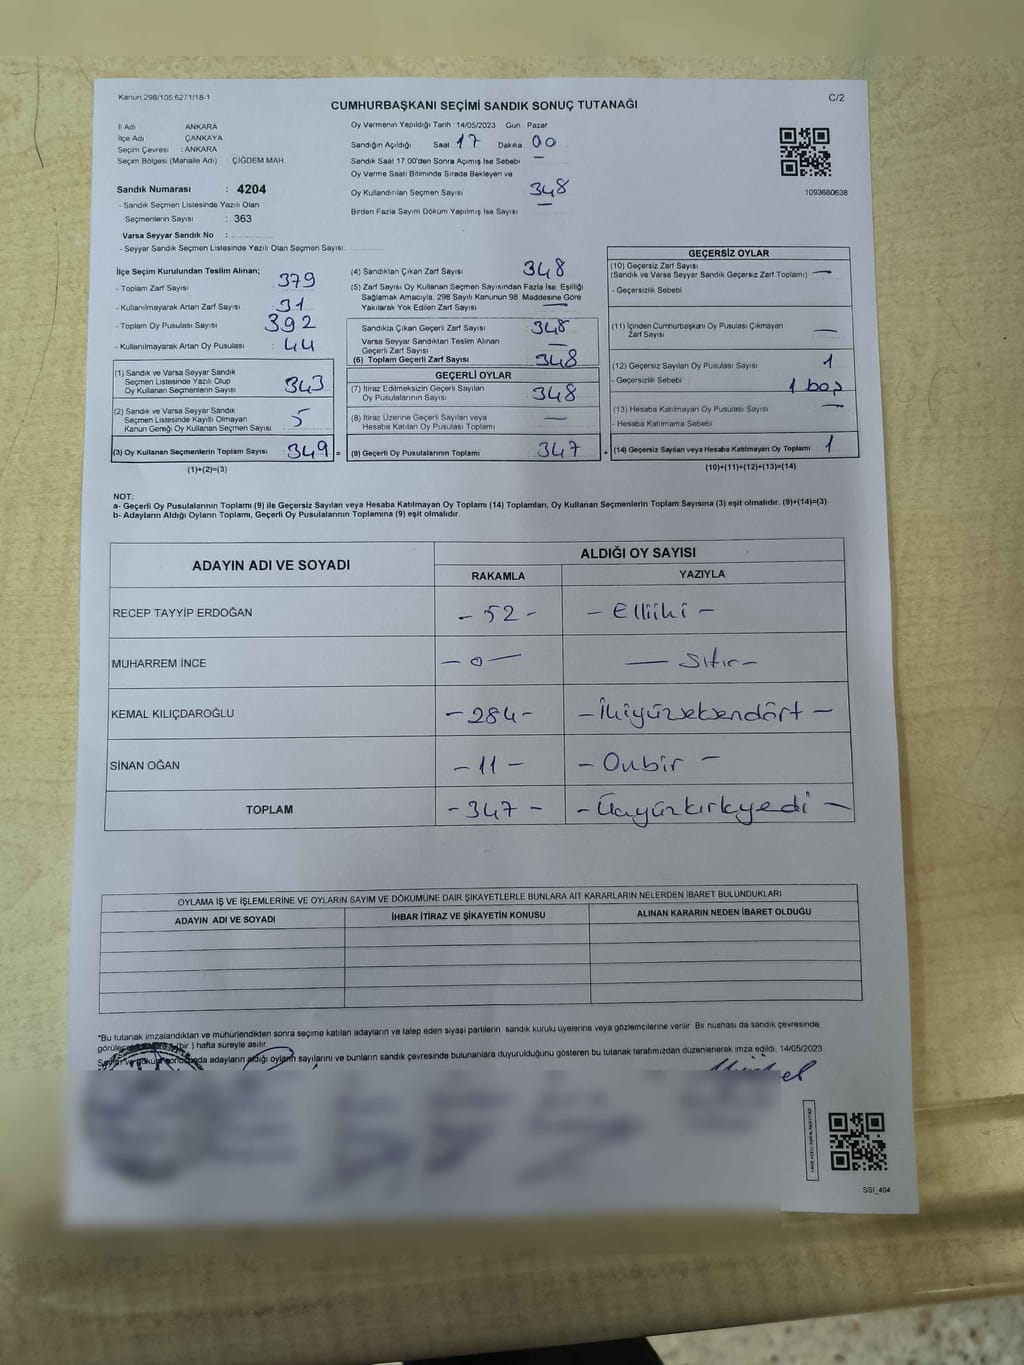 Kanun:298/105,6271/18-1
CUMHURBAŞKANI SEÇİMİ SANDIK SONUÇ TUTANAĞI
C/2
İl Adı ANKARA
İlçe Adı ÇANKAYA
Seçim Çevresi : ANKARA
Seçim Bölgesi (Mahalle Adı) : ÇİĞDEM MAH.
Sandık Numarası : 4204
- Sandık Seçmen Listesinde Yazılı Olan
Seçmenlerin Sayısı : 363
Varsa Seyyar Sandık No :
- Seyyar Sandık Seçmen Listesinde Yazılı Olan Seçmen Sayısı:
Oy Vermenin Yapıldığı Tarih : 14/05/2023 Gün Pazar
Sandığın Açıldığı Saat 17 Dakika 00
Sandık Saat 17:00'den Sonra Açılmış İse Sebebi —
Oy Verme Saati Bitiminde Sırada Bekleyen ve
Oy Kullandırılan Seçmen Sayısı 348
Birden Fazla Sayım Döküm Yapılmış İse Sayısı —
1093680638
İlçe Seçim Kurulundan Teslim Alınan;
- Toplam Zarf Sayısı : 379
- Kullanılmayarak Artan Zarf Sayısı : 31
- Toplam Oy Pusulası Sayısı : 392
- Kullanılmayarak Artan Oy Pusulası : 44
(1) Sandık ve Varsa Seyyar Sandık
Seçmen Listesinde Yazılı Olup
Oy Kullanan Seçmenlerin Sayısı 343
(2) Sandık ve Varsa Seyyar Sandık
Seçmen Listesinde Kayıtlı Olmayan
Kanun Gereği Oy Kullanan Seçmen Sayısı 5
(3) Oy Kullanan Seçmenlerin Toplam Sayısı 349 =
(1)+(2)=(3)
(4) Sandıktan Çıkan Zarf Sayısı 348
(5) Zarf Sayısı Oy Kullanan Seçmen Sayısından Fazla İse, Eşitliği
Sağlamak Amacıyla, 298 Sayılı Kanunun 98. Maddesine Göre
Yakılarak Yok Edilen Zarf Sayısı —
Sandıkta Çıkan Geçerli Zarf Sayısı 348
Varsa Seyyar Sandıktan Teslim Alınan
Geçerli Zarf Sayısı —
(6) Toplam Geçerli Zarf Sayısı 348
GEÇERLİ OYLAR
(7) İtiraz Edilmeksizin Geçerli Sayılan
Oy Pusulalarının Sayısı 348
(8) İtiraz Üzerine Geçerli Sayılan veya
Hesaba Katılan Oy Pusulası Toplamı —
(9) Geçerli Oy Pusulalarının Toplamı 347 +
GEÇERSİZ OYLAR
(10) Geçersiz Zarf Sayısı
(Sandık ve Varsa Seyyar Sandık Geçersiz Zarf Toplamı) —
- Geçersizlik Sebebi
(11) İçinden Cumhurbaşkanı Oy Pusulası Çıkmayan
Zarf Sayısı —
(12) Geçersiz Sayılan Oy Pusulası Sayısı 1
- Geçersizlik Sebebi 1 boş
(13) Hesaba Katılmayan Oy Pusulası Sayısı —
- Hesaba Katılmama Sebebi
(14) Geçersiz Sayılan veya Hesaba Katılmayan Oy Toplamı 1
(10)+(11)+(12)+(13)=(14)
NOT:
a- Geçerli Oy Pusulalarının Toplamı (9) ile Geçersiz Sayılan veya Hesaba Katılmayan Oy Toplamı (14) Toplamları, Oy Kullanan Seçmenlerin Toplam Sayısına (3) eşit olmalıdır. (9)+(14)=(3)
b- Adayların Aldığı Oyların Toplamı, Geçerli Oy Pusulalarının Toplamına (9) eşit olmalıdır.
ADAYIN ADI VE SOYADI ALDIĞI OY SAYISI
RAKAMLA YAZIYLA
RECEP TAYYİP ERDOĞAN – 52 – – Elliiki –
MUHARREM İNCE — 0 — — Sıfır –
KEMAL KILIÇDAROĞLU – 284 – – İkiyüzseksendört –
SİNAN OĞAN – 11 – – Onbir –
TOPLAM – 347 – – Üçyüzkırkyedi –
OYLAMA İŞ VE İŞLEMLERİNE VE OYLARIN SAYIM VE DÖKÜMÜNE DAİR ŞİKAYETLERLE BUNLARA AİT KARARLARIN NELERDEN İBARET BULUNDUKLARI
ADAYIN ADI VE SOYADI İHBAR İTİRAZ VE ŞİKAYETİN KONUSU ALINAN KARARIN NEDEN İBARET OLDUĞU
*Bu tutanak imzalandıktan ve mühürlendikten sonra seçime katılan adayların ve talep eden siyasi partilerin sandık kurulu üyelerine veya gözlemcilerine verilir. Bir nüshası da sandık çevresinde
(bir) hafta süreyle asılır.
adayların aldığı oyların sayılarını ve bunların sandık çevresinde bulunanlara duyurulduğunu gösteren bu tutanak tarafımızdan düzenlenerek imza edildi. 14/05/2023
SSI_404